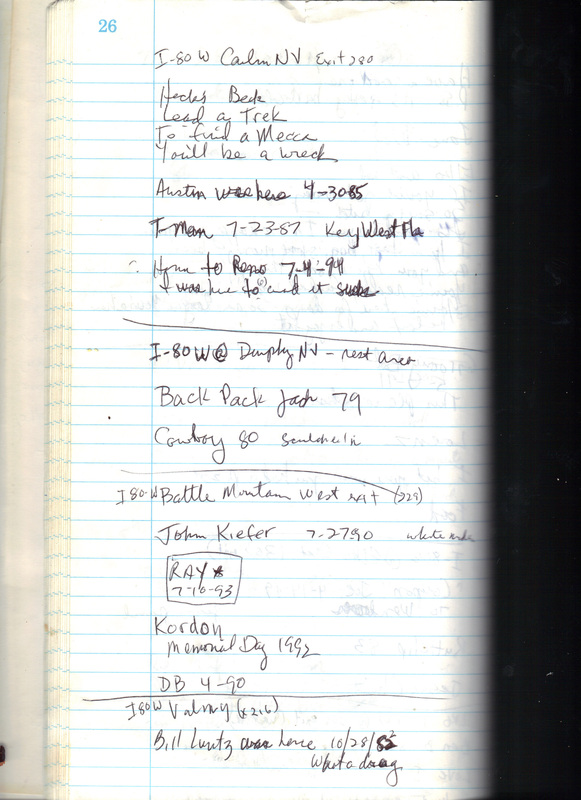 26
I-80 W Carlin NV Exit 280
Hecks Beck
Lead a Trek
To find a Mecca
You'll be a wreck
Austin was here 4-30-85
T-Man 7-23-87 Key West Fla
to Reno 7-4-94
I was here to and it sucks
I-80 W @ Dunphy NV - rest area
Back Pack Jack 79
Cowboy 80
I80-W Battle Mountain West exit (229)
John Kiefer 7-27-90
RAY
7-10-93
Kordon
Memorial Day 1992
DB 4-90
I80W Valmy (x216)
Bill Luntz was here 10/28/82
What a drag